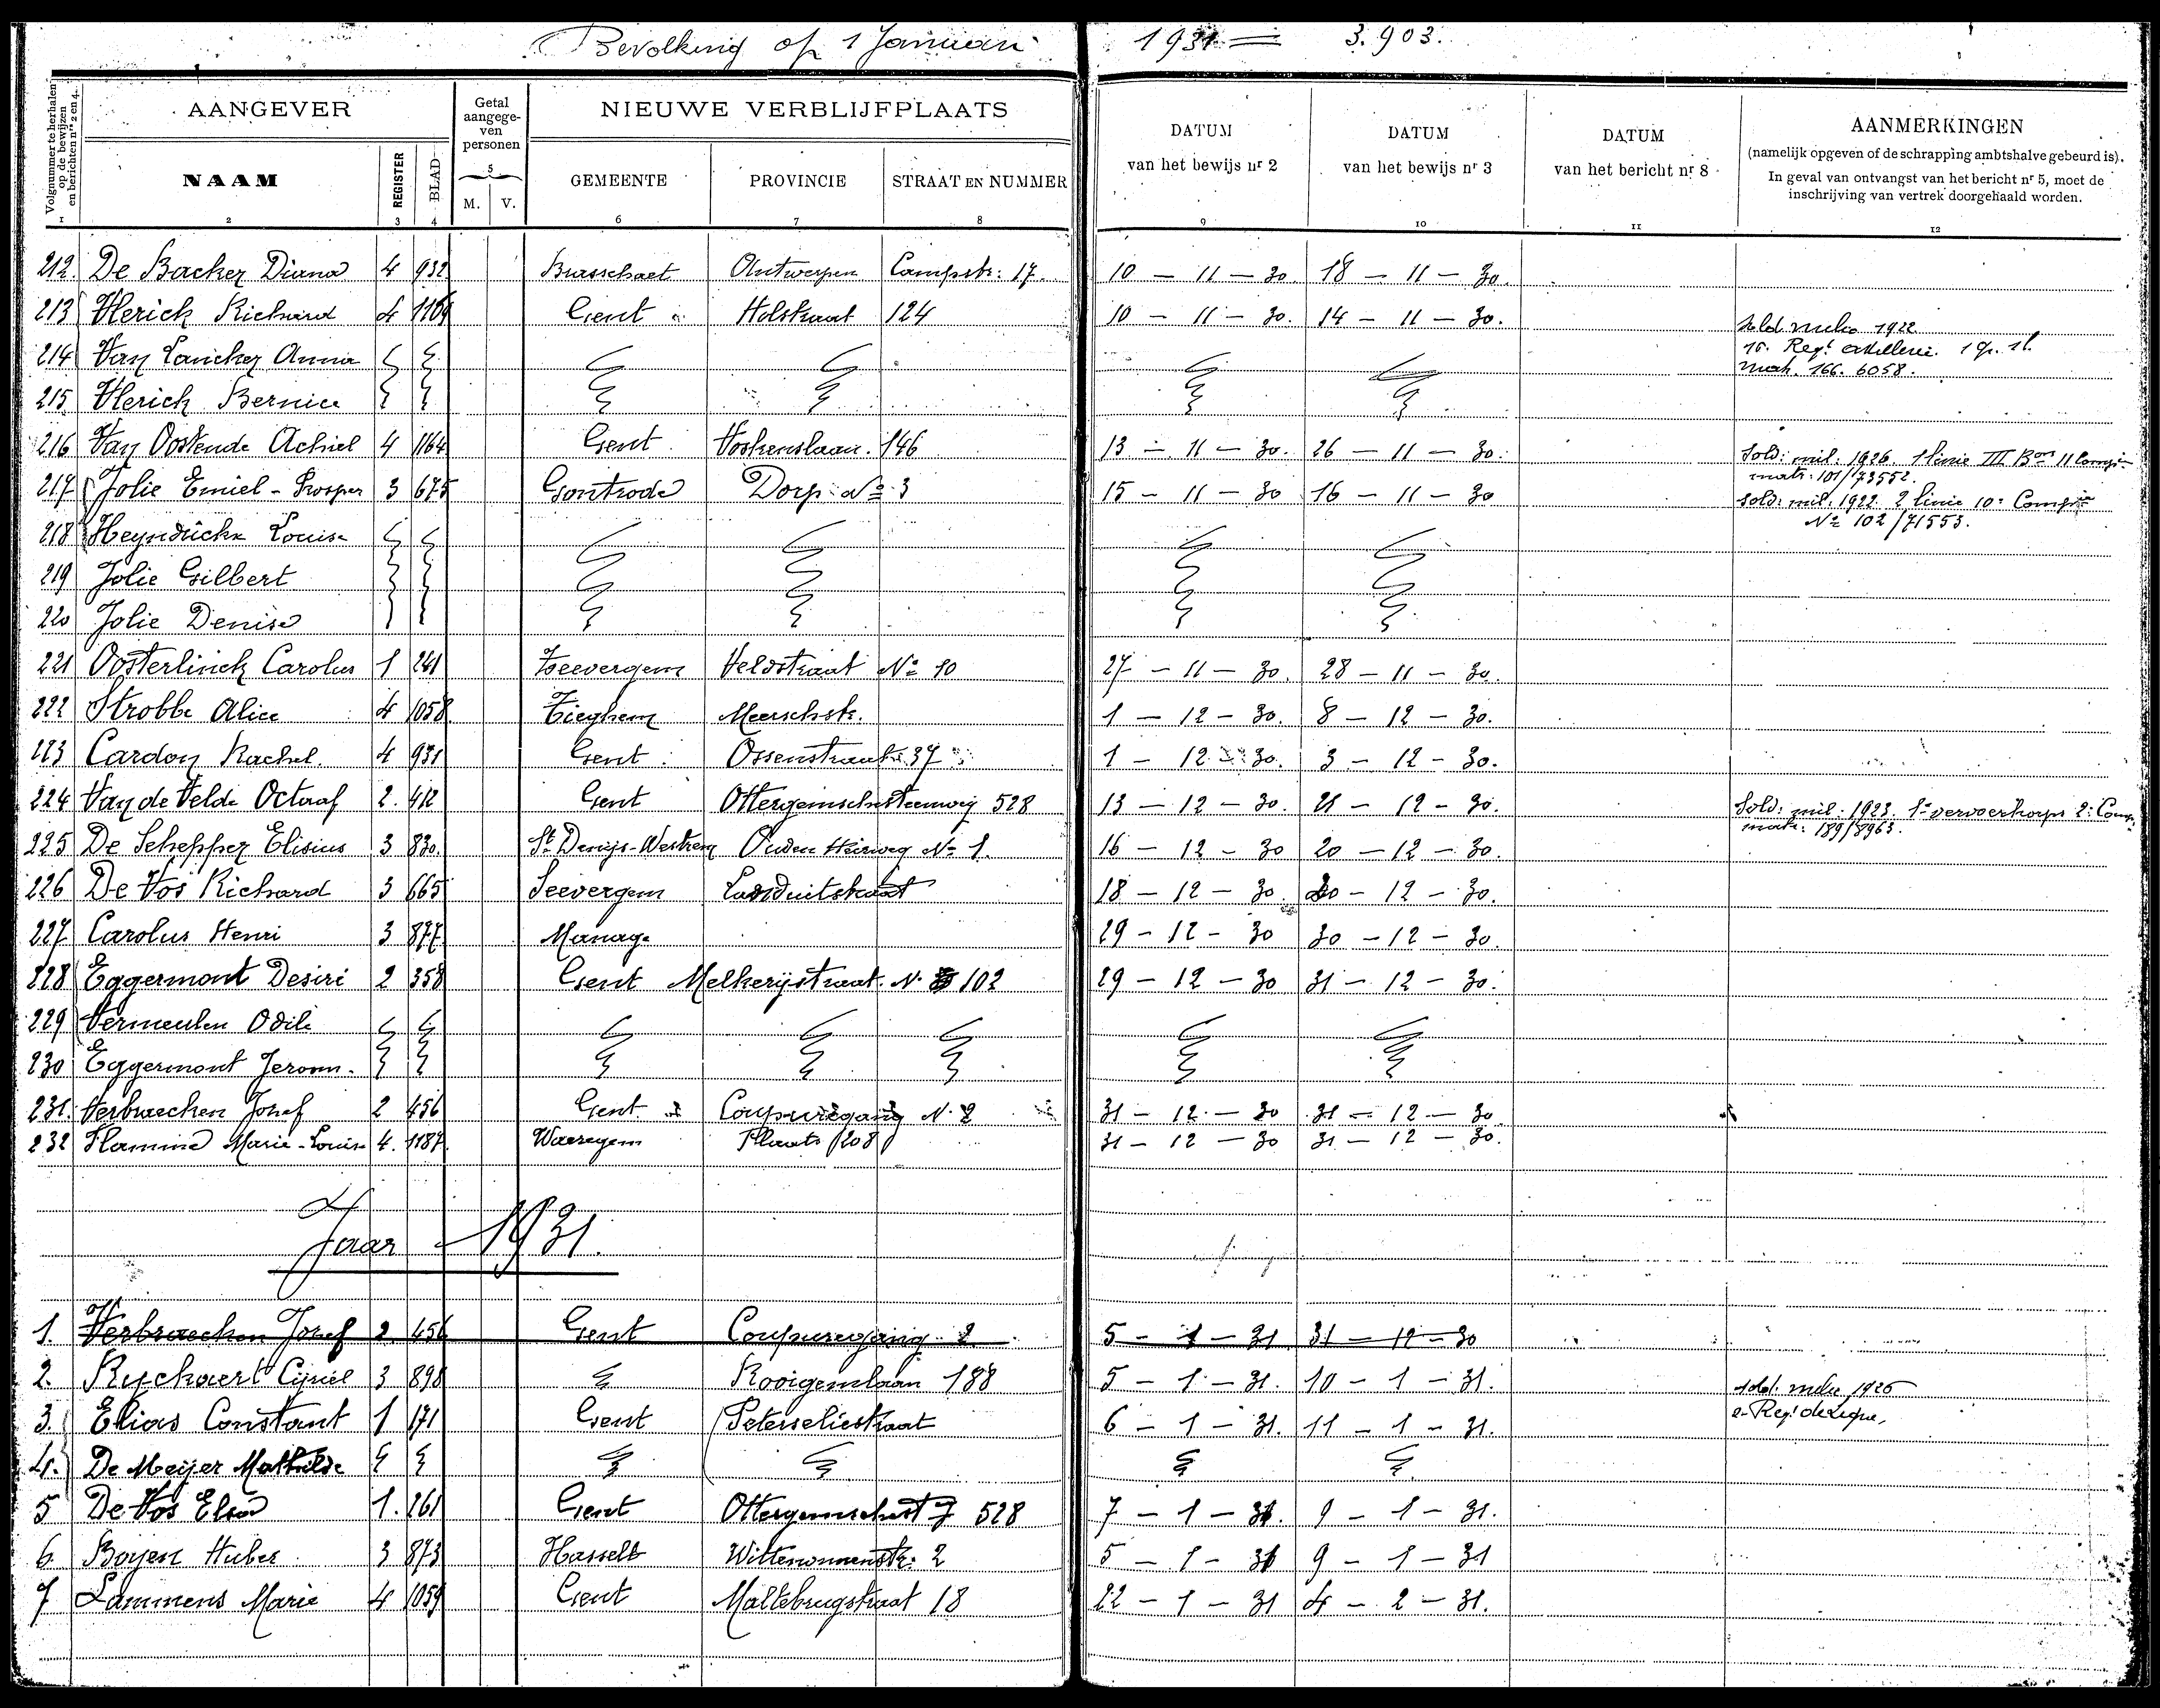 Bevolking op 1 Januari 1931 = 3.903.
Volgnummer te herhalen op de bewijzen en berichten nrs 2 en 4.
AANGEVER
Getal aangege-ven personen
NIEUWE VERBLIJFPLAATS
DATUM van het bewijs nr 2
DATUM van het bewijs nr 3
DATUM van het bericht nr 8
AANMERKINGEN
(namelijk opgeven of de schrapping ambtshalve gebeurd is).
In geval van ontvangst van het bericht nr 5, moet de
inschrijving van vertrek doorgehaald worden.
NAAM REGISTER BLAD 5 M. V. GEMEENTE PROVINCIE STRAAT EN NUMMER
1 2 3 4 6 7 8 9 10 11 12
212. De Backer Diana 4 932 Brasschaet Antwerpen Campstr: 17. 10 - 11 - 30. 18 - 11 - 30.
213 Vlerick Richard 4 1169 Gent Holstraat 124 10 - 11 - 30. 14 - 11 - 30.
1922
Regt artillerie
166. 6058.
214 Van Lancker Anna
215 Vlerick Bernice
216 Van Oostende Achiel 4 1164 Gent Voskenslaan. 146 13 - 11 - 30. 26 - 11 - 30.
Sold: mil: 1926. 1 linie III Bon 11 Comp:
matr: 101/73552.
217 Jolie Emiel - Prosper 3 675 Gontrode Dorp No 3 15 - 11 - 30 16 - 11 - 30
Sold: mil: 1922 2 linie 10e Compie
No 102/71553.
218 Heyndrickx Louise
219 Jolie Gilbert
220 Jolie Denise
221 Oosterlinck Carolus 1 241 Zeevergem Veldstraat No 10 27 - 11 - 30. 28 - 11 - 30.
222 Strobbe Alice 4 1058 Tieghem Meerschstr. 1 - 12 - 30. 8 - 12 - 30.
223 Cardon Rachel. 4 931 Gent Ossenstraat 37 1 - 12 - 30. 3 - 12 - 30.
224 Van de Velde Octaaf 2. 412 Gent Ottergemschesteenweg 528 13 - 12 - 30. 21 - 12 - 30.
Sold: mil: 1923. 1e vervoerkorps 2: Comp.
matr: 189/8963.
225 De Schepper Elisius 3 830. St Denijs-Westrem Ouden Heirweg No 1. 16 - 12 - 30 20 - 12 - 30.
226 De Vos Richard 3 665 Seevergem Landuitstraat 18 - 12 - 30. 20 - 12 - 30.
227 Carolus Henri 3 877 Manage 29 - 12 - 30 30 - 12 - 30.
228 Eggermont Desiré 2 358 Gent Melkerijstraat. N. 102 29 - 12 - 30 31 - 12 - 30.
229 Vermeulen Odile
230 Eggermont Jerom.
231. Verbraecken Jozef 2 456 Gent Coupuregang N. 2 31 - 12 - 30 31 - 12 - 30
232 Flamme Marie-Louise 4. 1187. Waeregem Plaats 208 31 - 12 - 30 31 - 12 - 30.
Jaar 1931.
1. Verbraecken Jozef 2. 456 Gent Coupuregang 2 5 - 1 - 31 31 - 12 - 30
2. Ryckaert Cyriel 3 898 Rooigemlaan 188 5 - 1 - 31. 10 - 1 - 31.
1926
3. Elias Constant 1 171 Gent Peterseliestraat 6 - 1 - 31. 11 - 1 - 31.
4. De Meijer Mathilde
5 De Vos Elsa 1. 261 Gent Ottergemschest g 528 7 - 1 - 31. 9 - 1 - 31.
6. Boyen Huber 3 873 Hasselt Wittenonnenstr: 2 5 - 1 - 31 9 - 1 - 31
7 Lammens Marie 4 1059 Gent Maltebrugstraat 18 22 - 1 - 31 4 - 2 - 31.